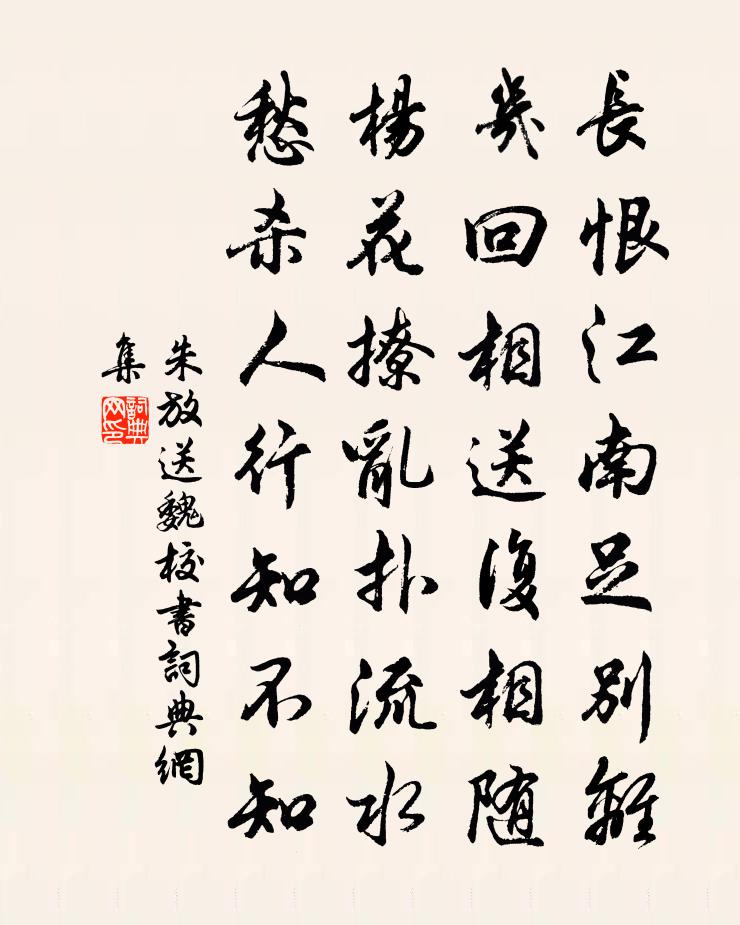 長恨江南足別離
幾回相送復相随
楊花撩亂扑流水
愁杀人行知不知
朱放送魏校書詞典網
集
詞典
网印